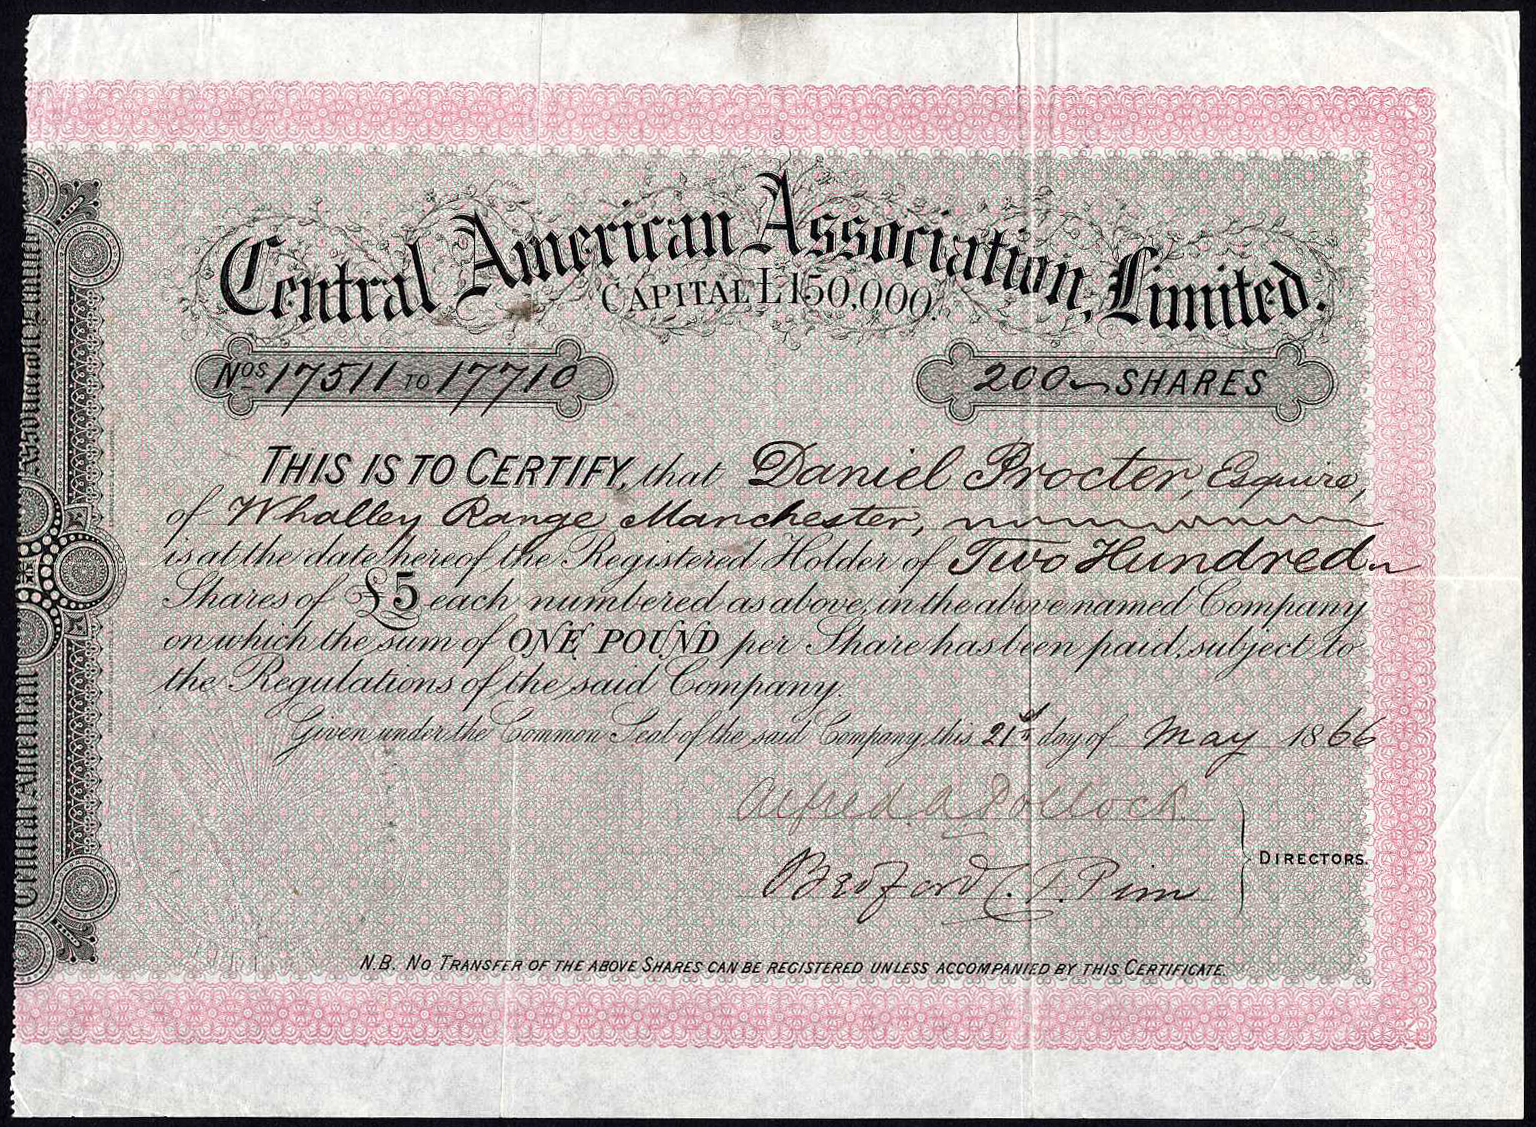 Central American Association, Limited.
CAPITAL £150,000.
Nos 17511 TO 17710
200 SHARES
THIS IS TO CERTIFY, that Daniel Procter, Esquire,
of Whalley Range Manchester,
is at the date hereof the Registered Holder of Two Hundred
Shares of £5 each numbered as above, in the above named Company
on which the sum of ONE POUND per Share has been paid, subject to
the Regulations of the said Company.
Given under the Common Seal of the said Company, this 21st day of May 1866
Alfred A Pollock
Bedford C. T. Pim
DIRECTORS.
N.B. NO TRANSFER OF THE ABOVE SHARES CAN BE REGISTERED UNLESS ACCOMPANIED BY THIS CERTIFICATE.
Central American Association Limited